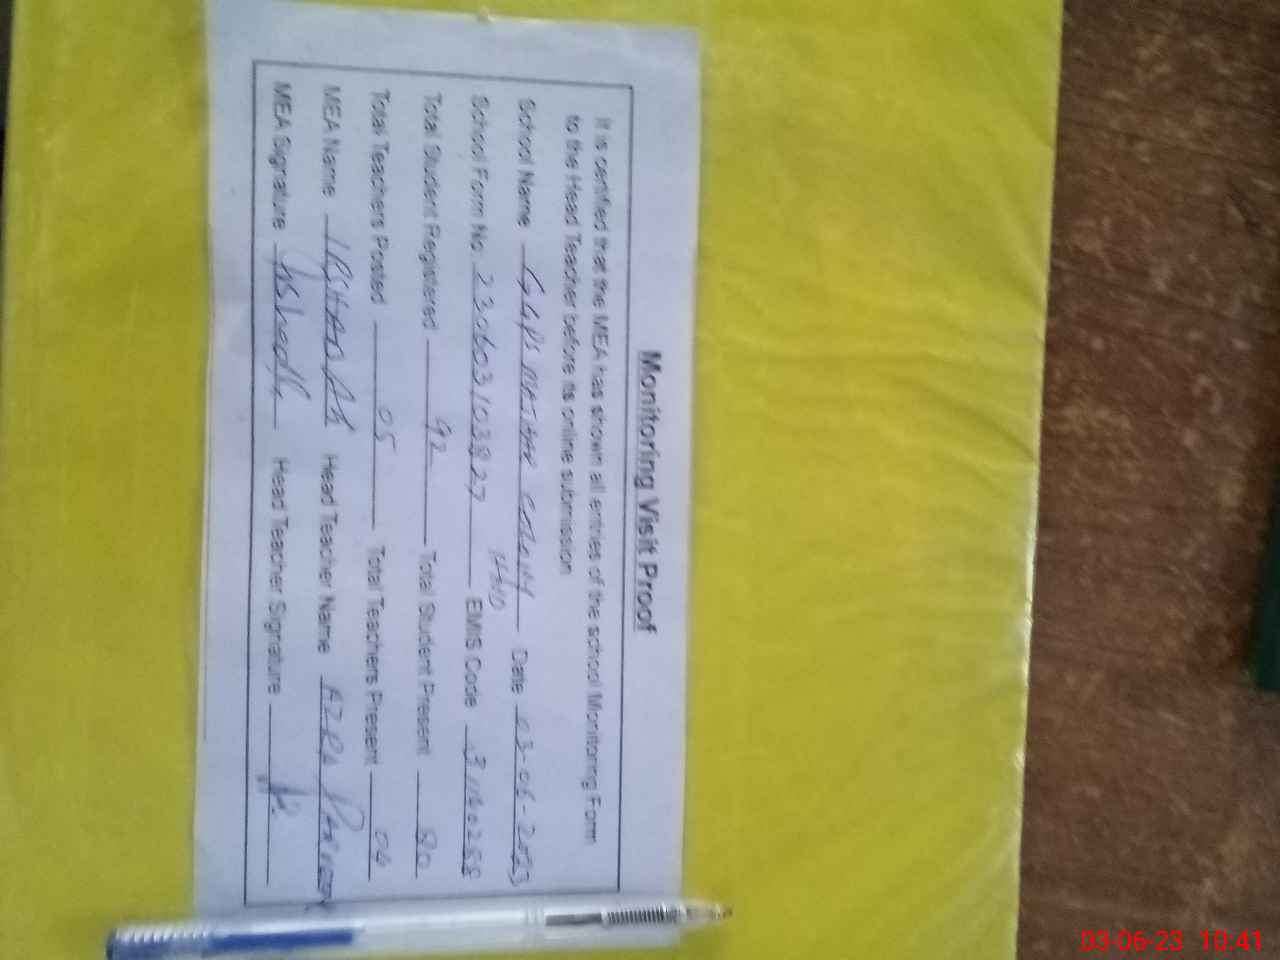 Monitoring Visit Proof
It is certified that the MEA has shown all entries of the school Monitoring Form
to the Head Teacher before its online submission
School Name GGPS COLONY Date 03-06-2023
HND
School Form No. 230603103827 EMIS Code
Total Student Registered 92 Total Student Present 80
Total Teachers Posted 05 Total Teachers Present 04
MEA Name IRSHAD Head Teacher Name AZRA PARVEEN
MEA Signature Head Teacher Signature
03-06-23 10:41